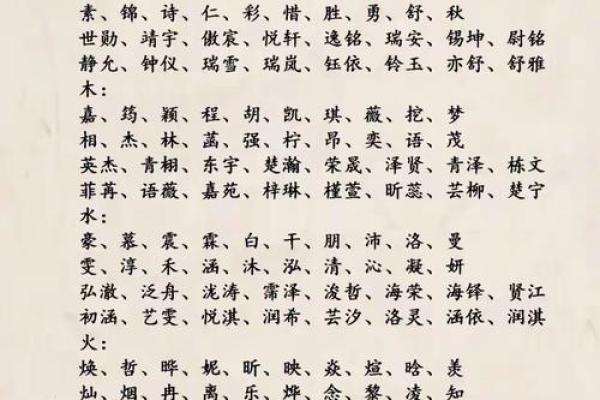 素、锦、诗、仁、彩、惜、胜、勇、舒、秋
世勋、靖宇、傲宸、悦轩、逸铭、瑞安、锡坤、尉铭
静允、钟仪、瑞雪、瑞岚、钰依、铃玉、亦舒、舒雅
木：
嘉、筠、颖、程、胡、凯、琪、薇、挖、梦
相、杰、林、菡、强、柠、昂、奕、语、茂
英杰、青栩、东宇、楚瀚、荣晟、泽贤、青泽、栋文
菲苒、语薇、嘉苑、梓琳、槿萱、昕蕊、芸柳、楚宁
水：
豪、慕、震、霖、白、干、朋、沛、洛、曼
雯、淳、禾、涵、沐、泓、清、沁、凝、妍
弘澈、泛舟、泷涛、霈泽、浚哲、海荣、海铎、贤江
初涵、艺雯、悦淇、润希、芸汐、洛灵、涵依、润淇
火：
焕、哲、晔、妮、昕、映、焱、煊、晗、羡
灿、烟、冉、离、乐、烨、念、黎、凌、知